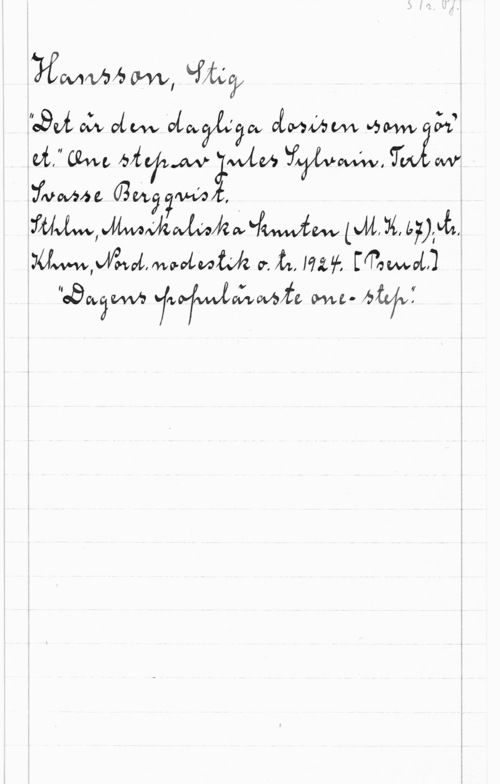 Hansson, Stig
"Det är den dagliga dosisen som gör'
et." One step av Jules Sylvain. Text av
Svasse Bergqvist.
Sthlm, Musikaliska knuten (M. K. 67); tr.
Khvn, Nord. nodestik o. tr. 1924. [Pseud.]
"Dagens populäraste one-step".